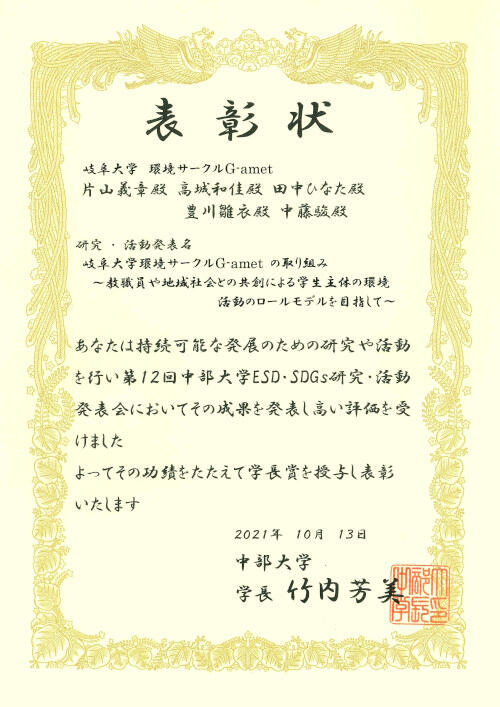 表彰状
岐阜大学 環境サークルG-amet
片山義章殿 高城和佳殿 田中ひなた殿
豊川雛衣殿 中藤駿殿
研究・活動発表名
岐阜大学環境サークルG-amet の取り組み
～教職員や地域社会との共創による学生主体の環境
活動のロールモデルを目指して～
あなたは持続可能な発展のための研究や活動
を行い第12回中部大学ESD・SDGs研究・活動
発表会においてその成果を発表し高い評価を受
けました
よってその功績をたたえて学長賞を授与し表彰
いたします
2021年 10月 13日
中部大学
学長 竹内芳美